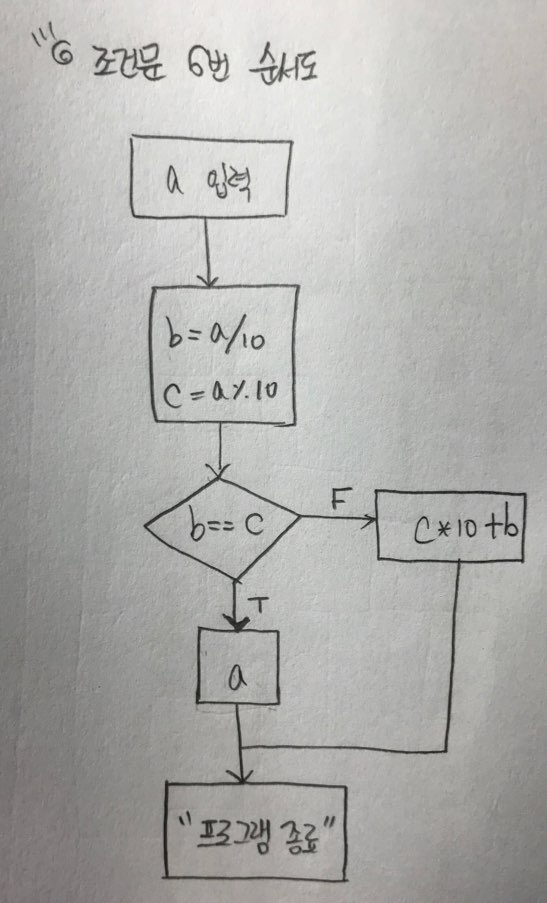 6 조건문 6번 순서도
a 입력
b=a/10
c=a%10
b==c
F
c*10+b
T
a
"프로그램 종료"